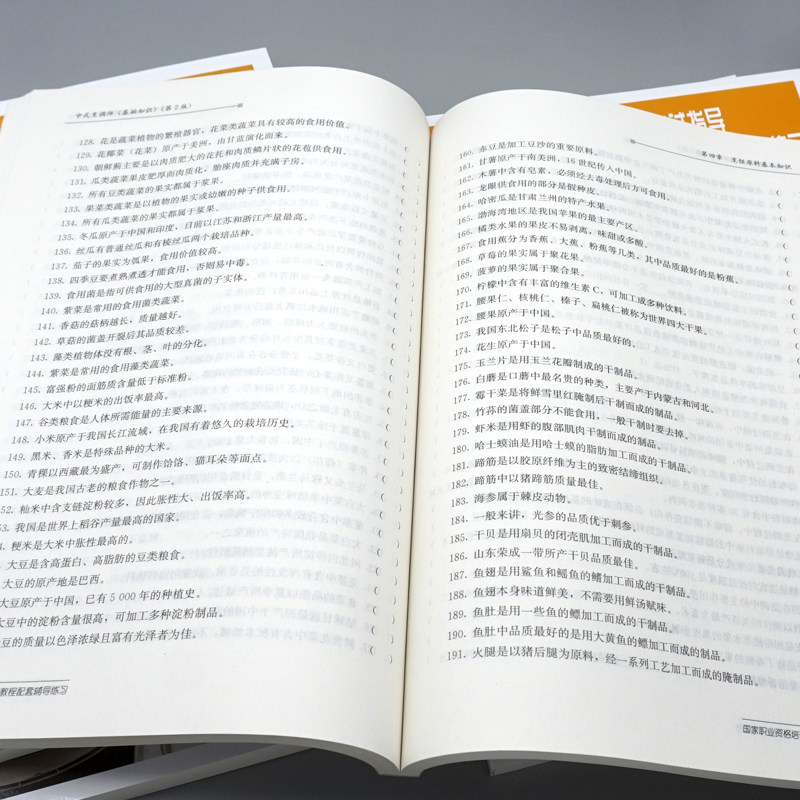 中式烹调师(基础知识)(第2版)
128. 花是蔬菜植物的繁殖器官,花菜类蔬菜具有较高的食用价值。
129. 花椰菜(花菜)原产于美洲,由甘蓝演化而来。
130. 朝鲜蓟主要是以肉质肥大的花托和肉质鳞片状的花苞供食用。
131. 瓜类蔬菜果皮肥厚而肉质化,胎座肉质并充满子房。
132. 所有豆类蔬菜的果实都属于浆果。
133. 果菜类蔬菜是以植物的果实或幼嫩的种子供食用。
134. 所有瓜类蔬菜的果实都属于浆果。
135. 冬瓜原产于中国和印度,目前以江苏和浙江产量最高。
136. 丝瓜有普通丝瓜和有棱丝瓜两个栽培品种。
137. 茄子的果实为瓠果,食用价值较高。
138. 四季豆要煮熟煮透才能食用,否则易中毒。
139. 食用菌是指可供食用的大型真菌的子实体。
140. 紫菜是常用的食用菌类蔬菜。
141. 香菇的菇柄越长,质量越好。
142. 草菇的菌盖开裂后其品质较差。
143. 藻类植物体没有根、茎、叶的分化。
144. 紫菜是常用的食用藻类蔬菜。
145. 富强粉的面筋质含量低于标准粉。
146. 大米中以粳米的出饭率最高。
147. 谷类粮食是人体所需能量的主要来源。
148. 小米原产于我国长江流域,在我国有着悠久的栽培历史。
149. 黑米、香米是特殊品种的大米。
150. 青稞以西藏最为盛产,可制作饸饹、猫耳朵等面点。
151. 大麦是我国古老的粮食作物之一。
52. 籼米中含支链淀粉较多,因此胀性大、出饭率高。
53. 我国是世界上稻谷产量最高的国家。
粳米是大米中胀性最高的。
大豆是含高蛋白、高脂肪的豆类粮食。
大豆的原产地是巴西。
大豆原产于中国,已有5 000年的种植史。
大豆中的淀粉含量很高,可加工多种淀粉制品。
豆的质量以色泽浓绿且富有光泽者为佳。
教程配套辅导练习
第四章 烹饪原料基本知识
160. 赤豆是加工豆沙的重要原料。
161. 甘薯原产于南美洲,16世纪传入中国。
162. 木薯中含有皂素,必须经去毒处理后方可食用。
163. 龙眼供食用的部分是假种皮。
164. 哈密瓜是甘肃兰州的特产水果。
165. 渤海湾地区是我国苹果的最主要产区。
166. 橘类水果的果皮不易剥离,味甜或多酸。
167. 食用蕉分为香蕉、大蕉、粉蕉等几类,其中品质最好的是粉蕉。
168. 草莓的果实属于聚花果。
169. 菠萝的果实属于聚合果。
170. 柠檬中含有丰富的维生素C,可加工成多种饮料。
171. 腰果仁、核桃仁、榛子、扁桃仁被称为世界四大干果。
172. 腰果原产于中国。
173. 我国东北松子是松子中品质最好的。
174. 花生原产于中国。
175. 玉兰片是用玉兰花瓣制成的干制品。
176. 白蘑是口蘑中最名贵的种类,主要产于内蒙古和河北。
177. 霉干菜是将鲜雪里红腌制后干制而成的制品。
178. 竹荪的菌盖部分不能食用,一般干制时要去掉。
179. 虾米是用虾的腹部肌肉干制而成的制品。
180. 哈士蟆油是用哈士蟆的脂肪加工而成的干制品。
181. 蹄筋是以胶原纤维为主的致密结缔组织。
182. 蹄筋中以猪蹄筋质量最佳。
183. 海参属于棘皮动物。
184. 一般来讲,光参的品质优于刺参。
185. 干贝是用扇贝的闭壳肌加工而成的干制品。
186. 山东荣成一带所产干贝品质最佳。
187. 鱼翅是用鲨鱼和鳐鱼的鳍加工而成的干制品。
188. 鱼翅本身味道鲜美,不需要用鲜汤赋味。
189. 鱼肚是用一些鱼的鳔加工而成的干制品。
190. 鱼肚中品质最好的是用大黄鱼的鳔加工而成的制品。
191. 火腿是以猪后腿为原料,经一系列工艺加工而成的腌制品。
国家职业资格培
试指导